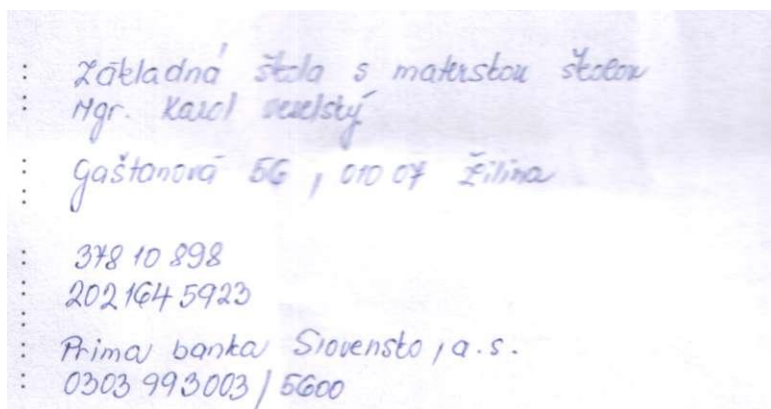 : Základná škola s materskou školou
: Mgr. Karol Veselský
: Gaštanová 56, 010 07 Žilina
: 378 10 898
: 202164 5923
: Prima banka Slovensko, a.s.
: 0303 993003 / 5600